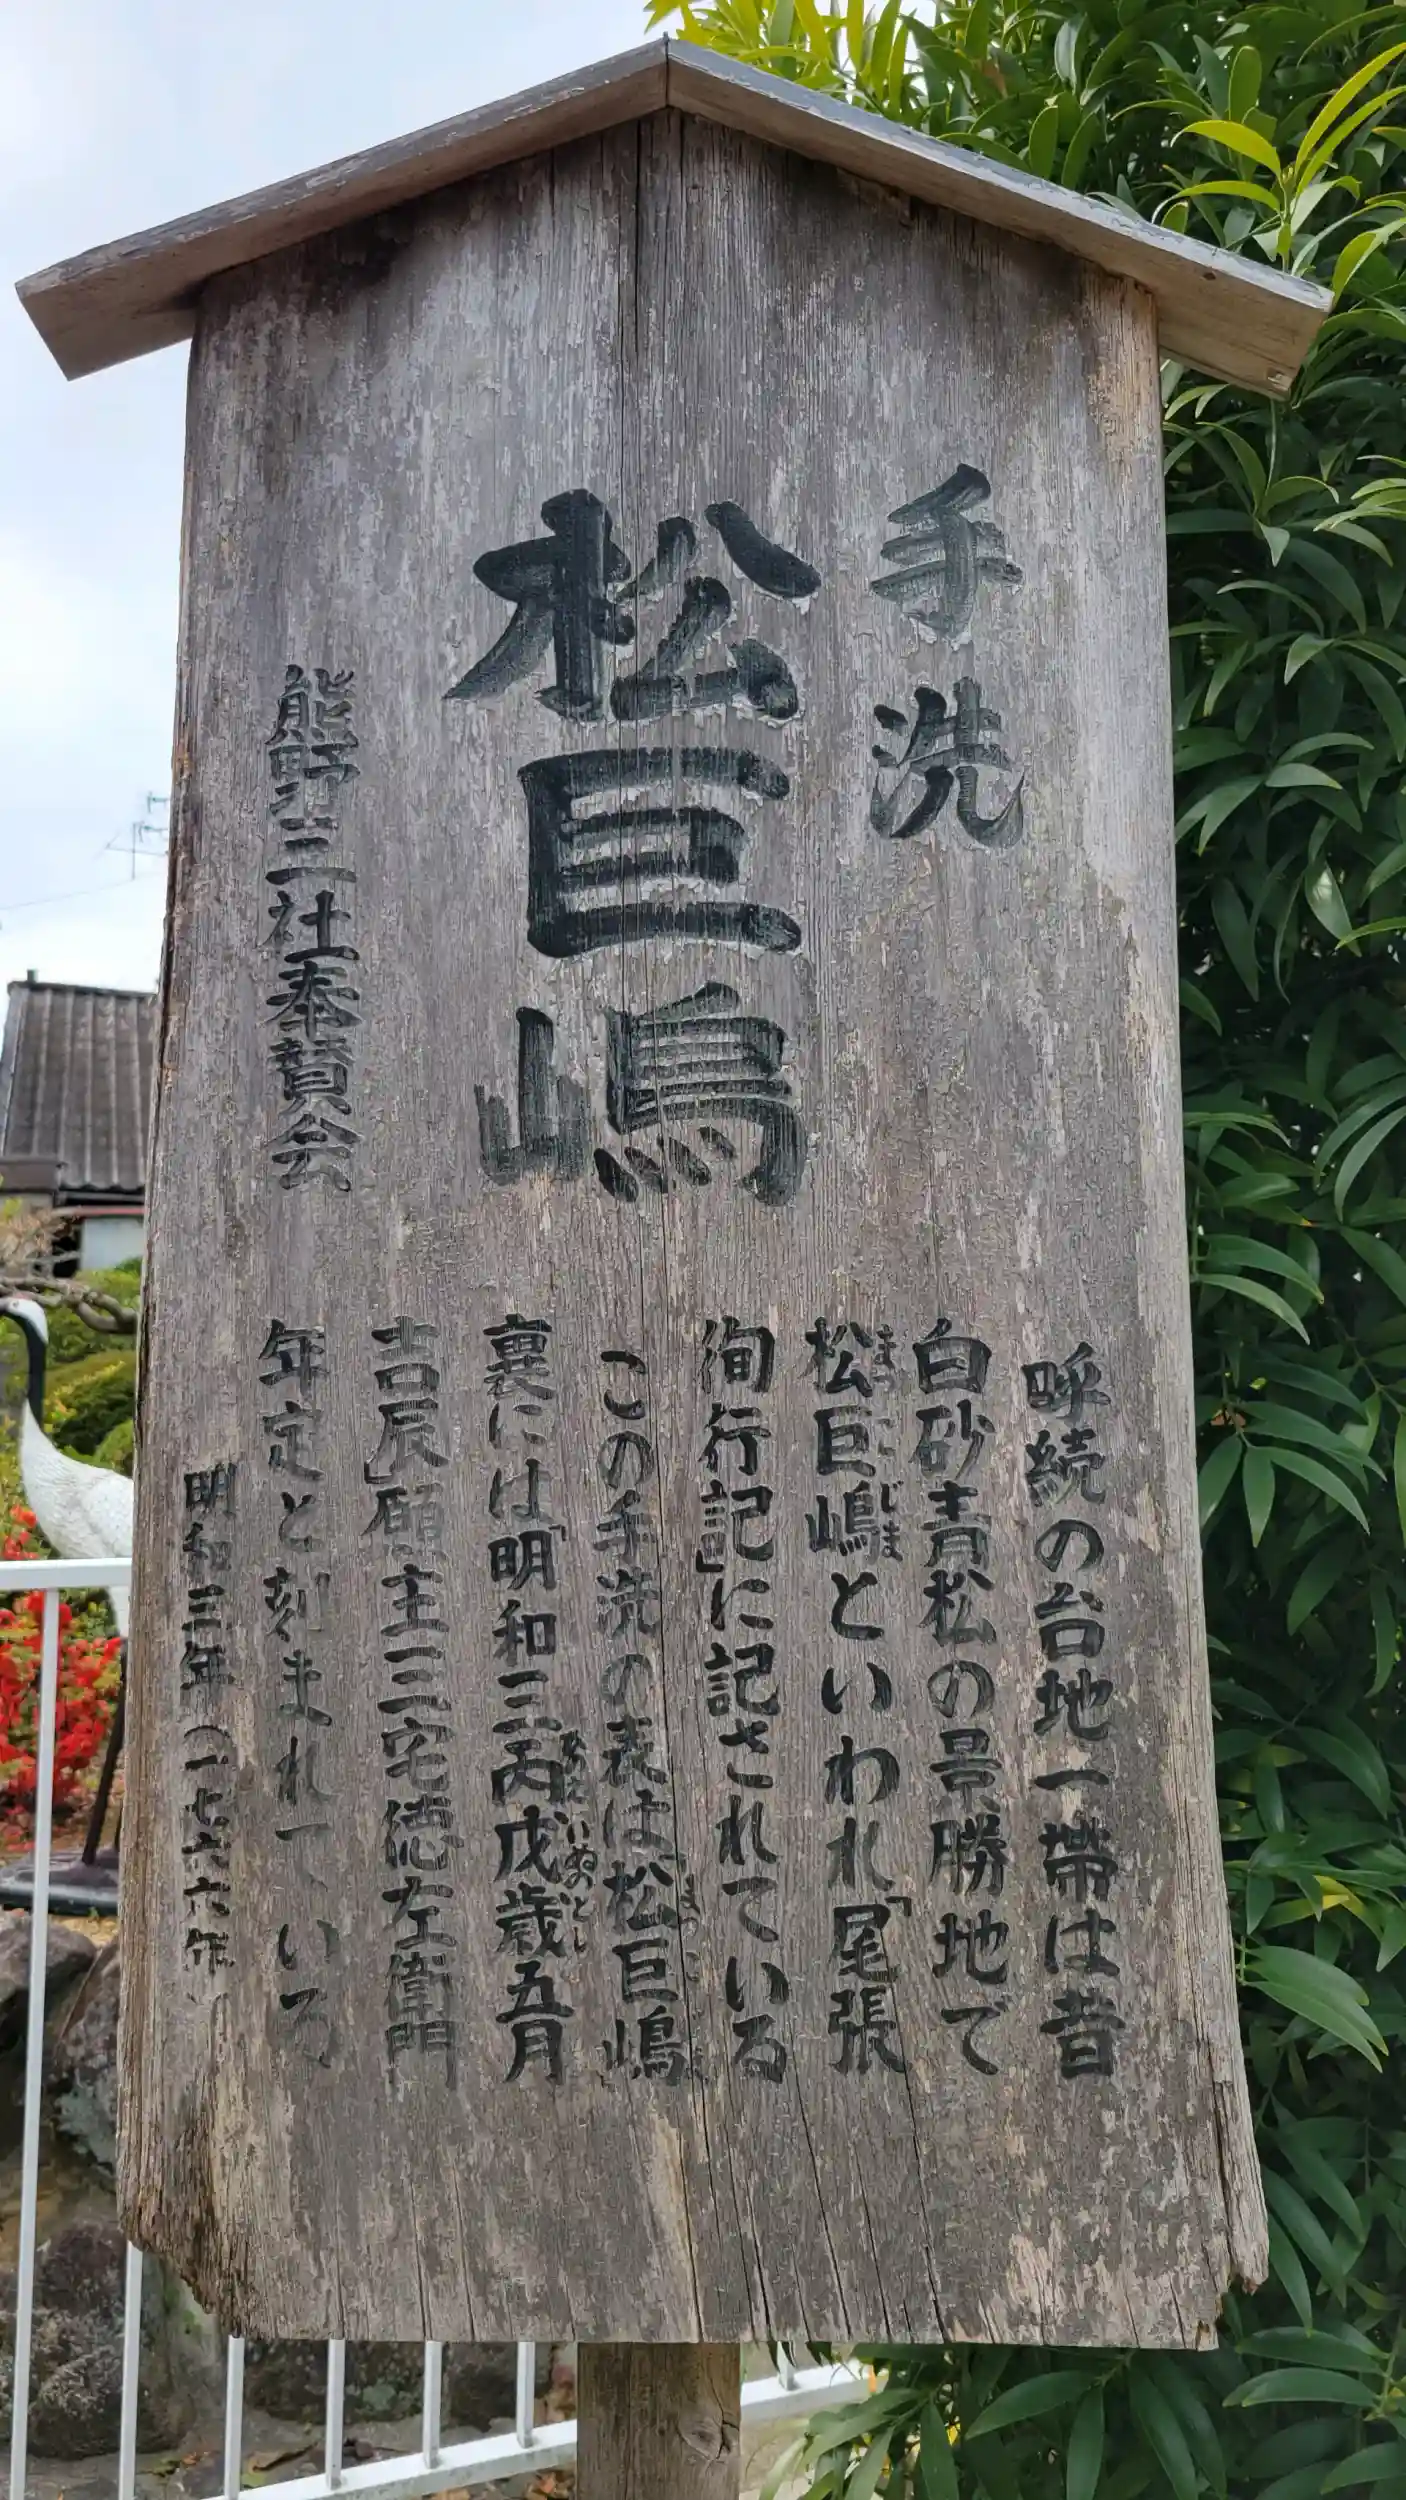 手洗
松巨嶋
熊野三社奉賛会
呼続の台地一帯は昔
白砂青松の景勝地で
松巨嶋といわれ「尾張
まつこじま
徇行記」に記されている
この手洗の表は松巨嶋
まつこじま
裏には「明和三丙戌歳五月
ひのえいぬのとし
吉辰」願主三宅徳左衛門
年定と刻まれている
明和三年(一七六六年)